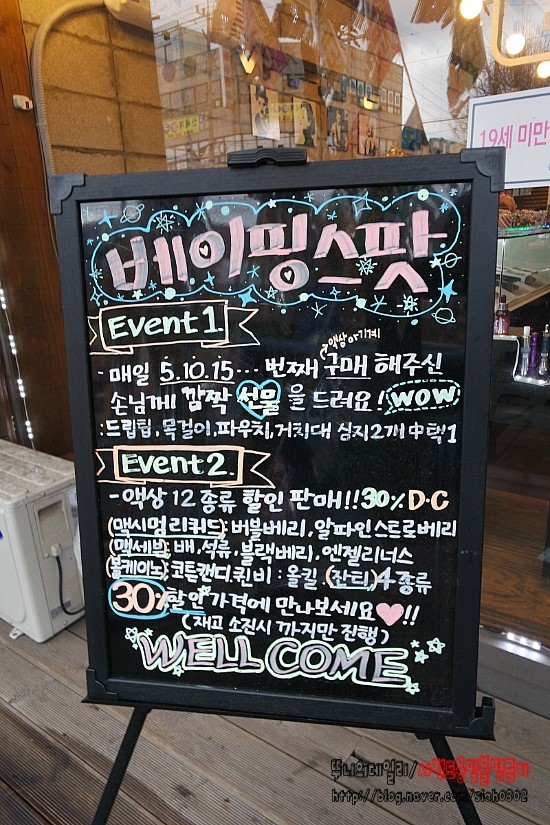 19세 미만
베이핑스팟
Event 1.
- 매일 5.10.15... 번째 구매 해주신
액상 or 기계
손님께 깜짝 선물을 드려요! WOW
: 드립팁, 목걸이파우치, 거치대, 심지2개 中 택1
Event 2.
- 액상 12종류 할인 판매!! 30% D·C
(맥시멈리쿼드): 버블베리, 알파인스트로베리
(맥세분): 배, 석류, 블랙베리, 엔젤리너스
(볼케이노): 코튼캔디. 퀸비 : 올킬, (잔티), 4종류
30% 할인가격에 만나보세요♥!!
(재고 소진시 까지만 진행)
WELL COME
뚜니의데일리/
http://blog.naver.com/siah0302